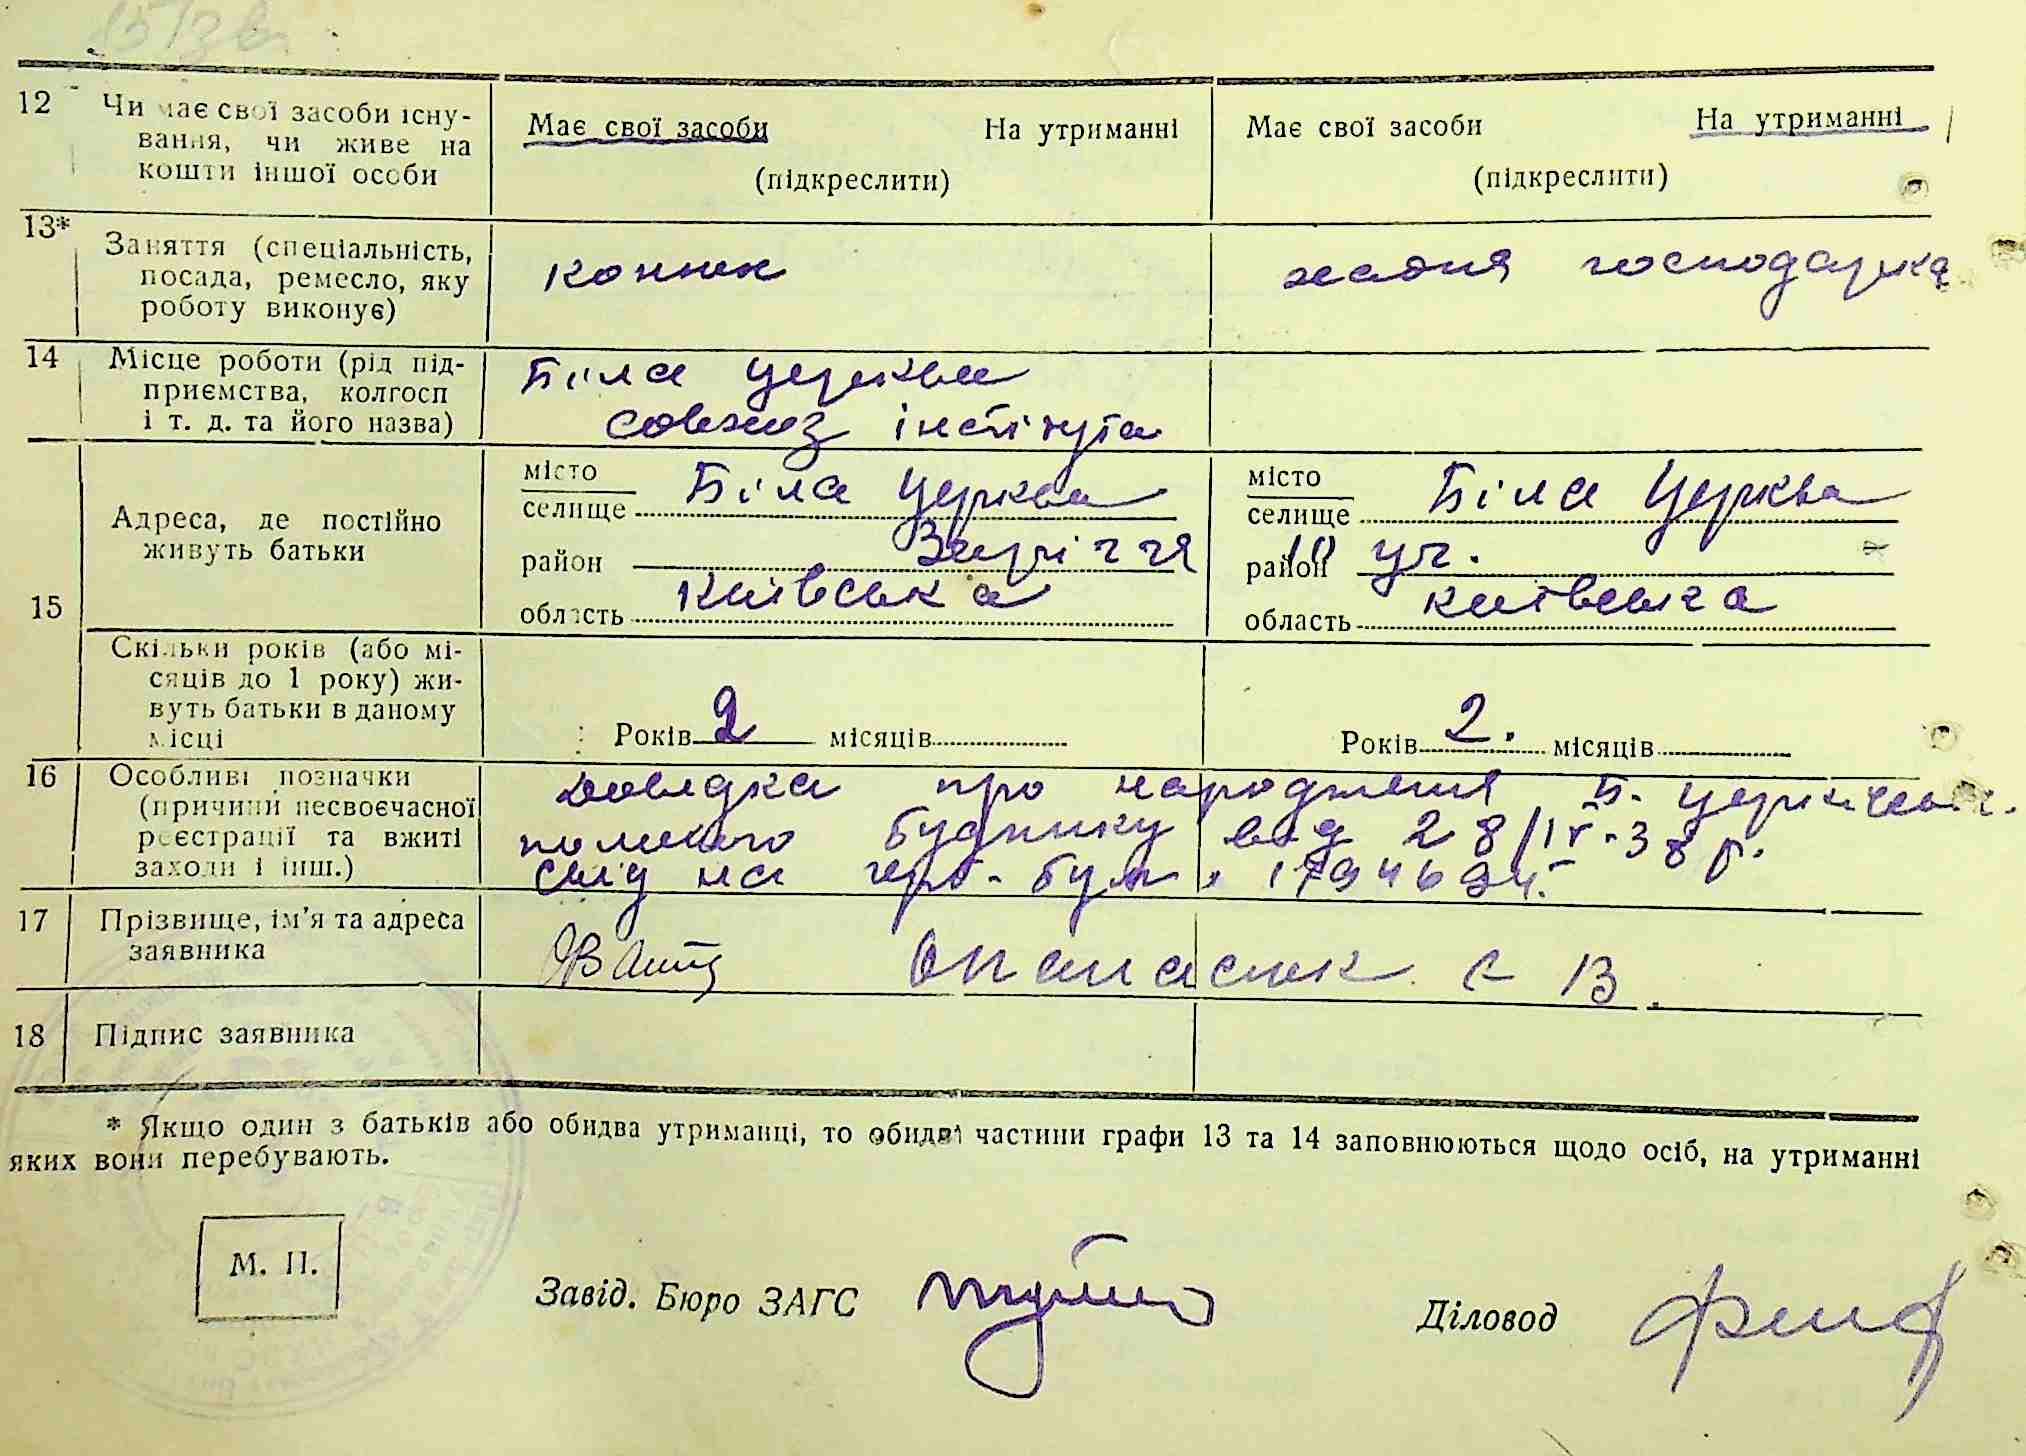 12 Чи має свої засоби існу-
вання, чи живе на
кошти іншої особи
Має свої засоби На утриманні
(підкреслити)
Має свої засоби На утриманні
(підкреслити)
13* Заняття (спеціальність,
посада, ремесло, яку
роботу виконує)
конюх
хатня господарка
14 Місце роботи (рід під-
приємства, колгосп
і т. д. та його назва)
Біла церква
совхоз інстітута
15 Адреса, де постійно
живуть батьки
місто
селище Біла Церква
район Заріччя
область Київська
місто
селище Біла Церква
район уч.
область Київська
Скільки років (або мі-
сяців до 1 року) жи-
вуть батьки в даному
місці
Років 2 місяців
Років 2. місяців
16 Особливі позначки
(причини несвоєчасної
реєстрації та вжиті
заходи і інш.)
Довідка про народження Б. церківськ.
полового будинку від 28/IV-38 р.
свід на герб. бум.
17 Прізвище, ім'я та адреса
заявника
Опанасюк
18 Підпис заявника
* Якщо один з батьків або обидва утриманці, то обидві частини графи 13 та 14 заповнюються щодо осіб, на утриманні
яких вони перебувають.
М. П.
Завід. Бюро ЗАГС
Діловод